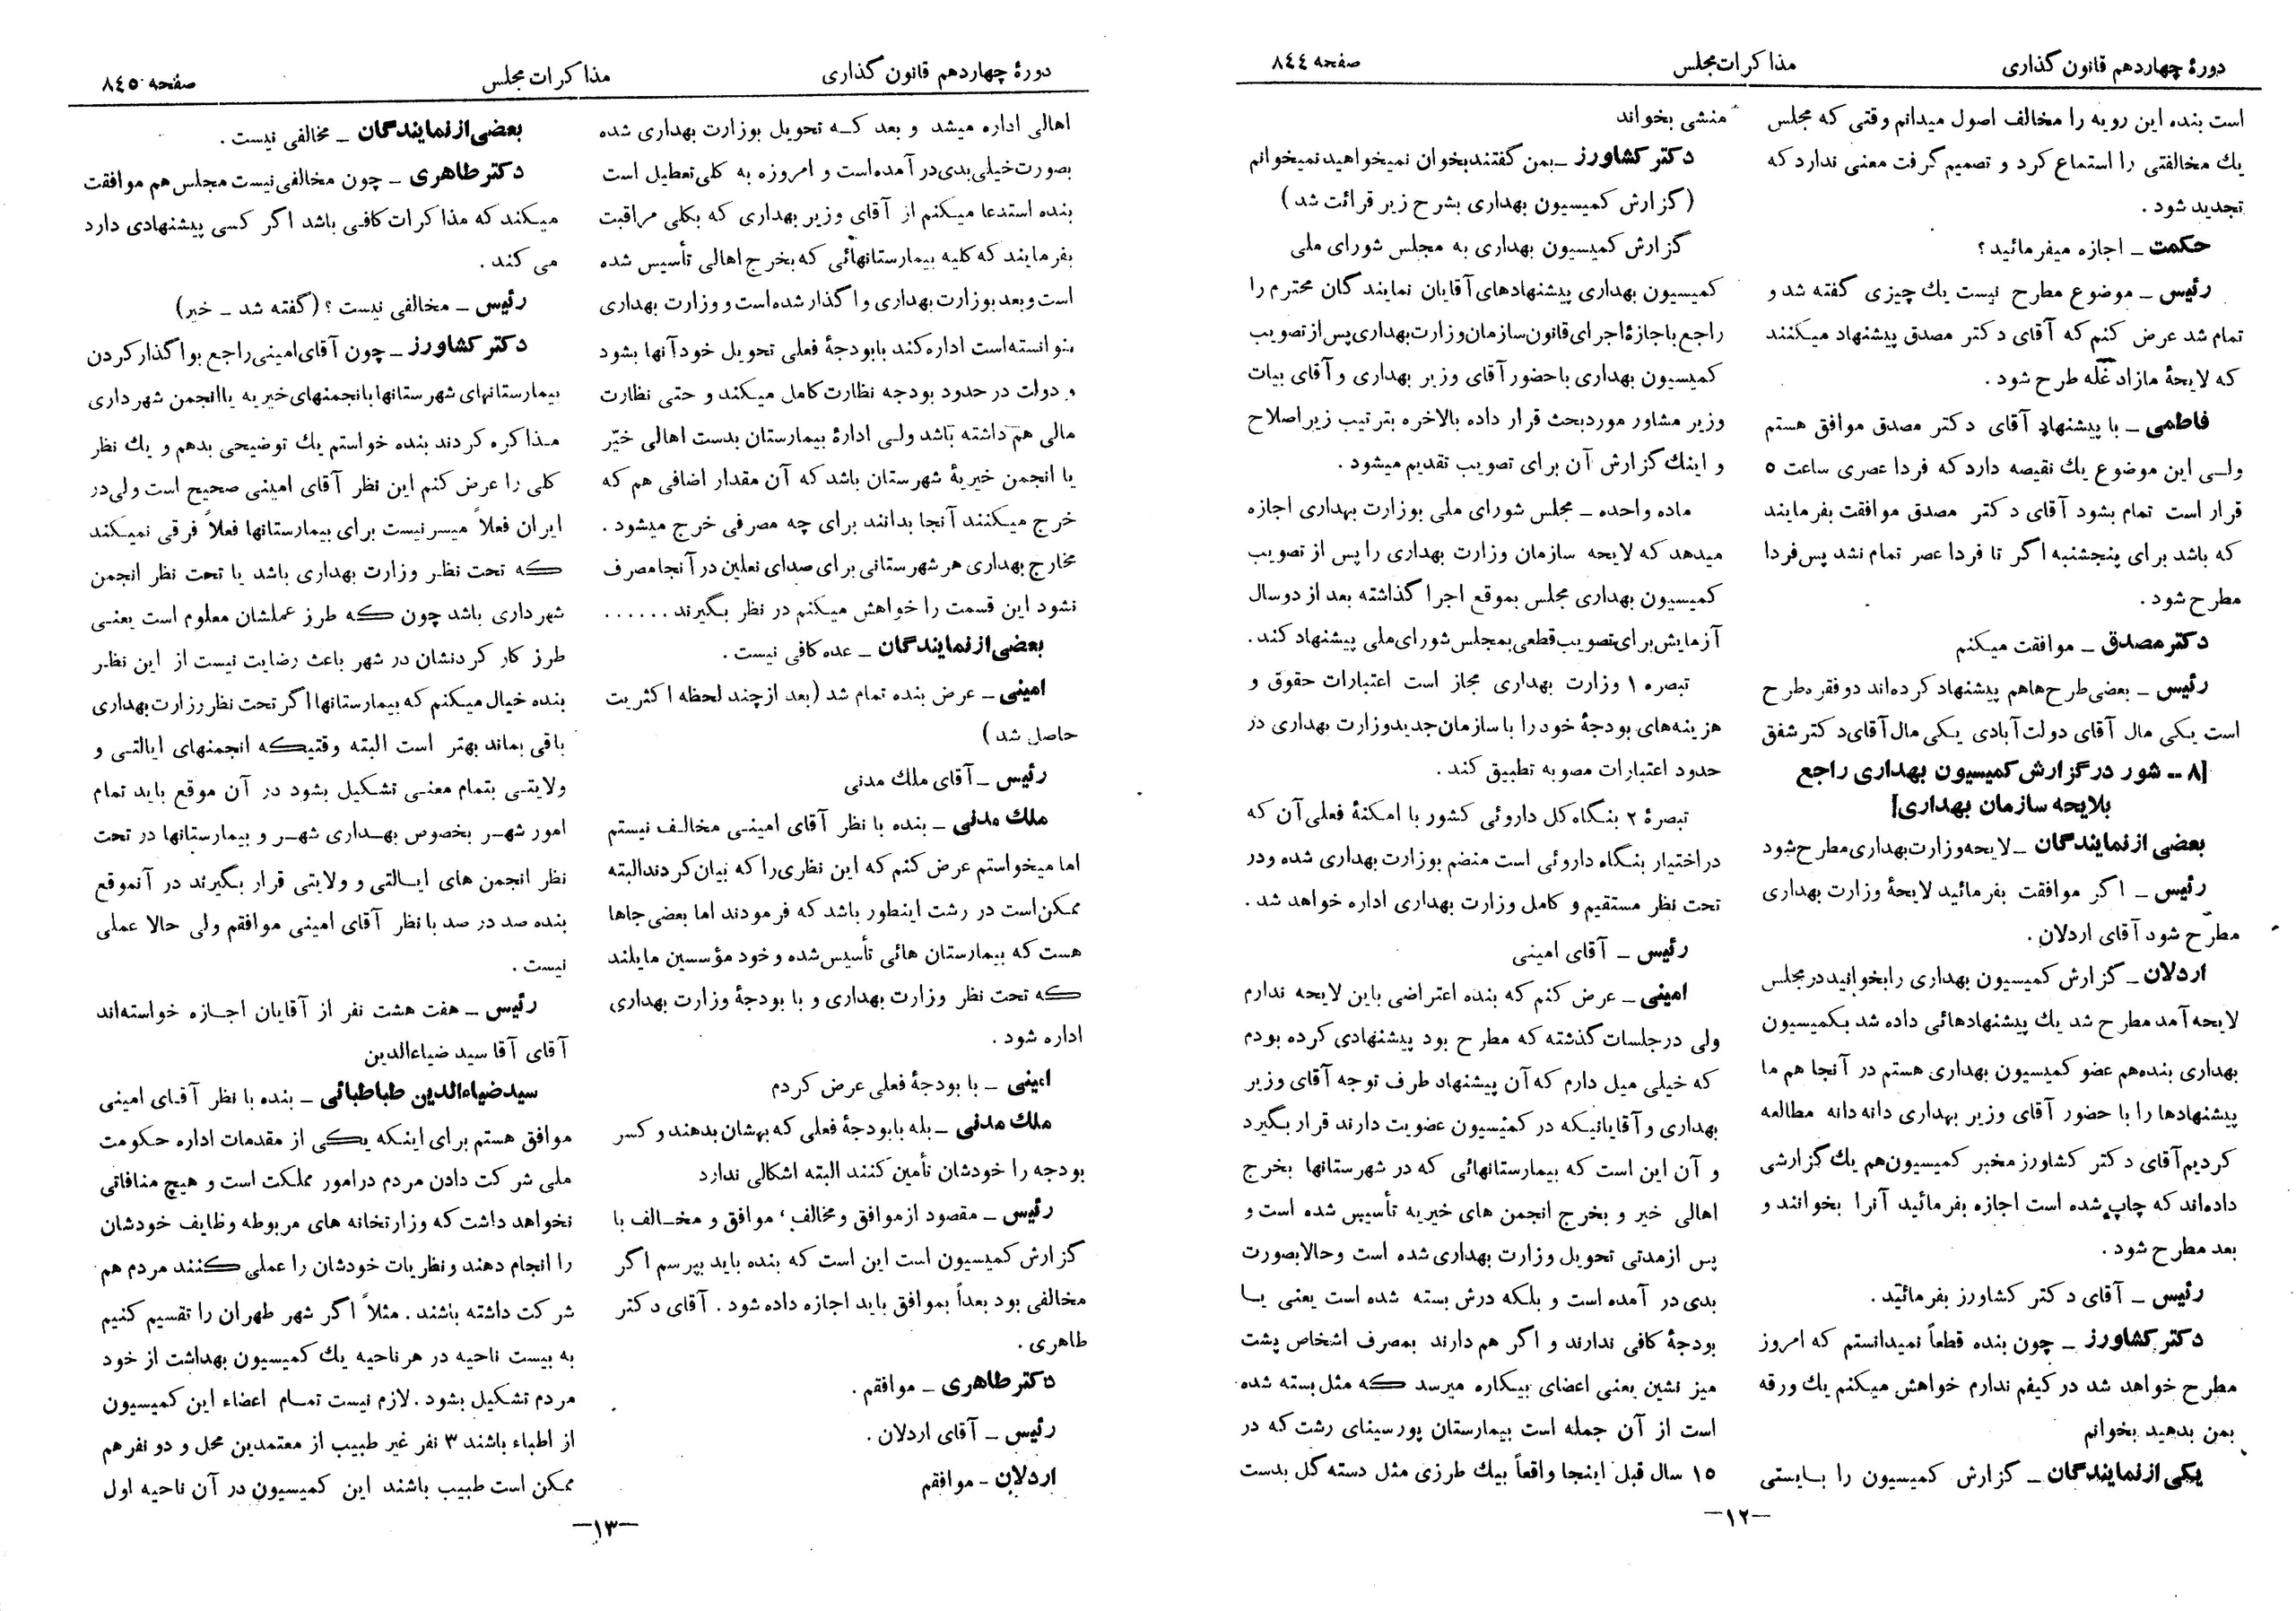 دورهٔ چهاردهم قانون گذاری
مذاکرات مجلس
صفحه ٨٤٤
است بنده این رویه را مخالف اصول میدانم وقتی که مجلس
یك مخالفتی را استماع کرد و تصمیم گرفت معنی ندارد که
تجدید شود .
حکمت ــ اجازه میفرمائید ؟
رئیس ــ موضوع مطرح نیست یك چیزی گفته شد و
تمام شد عرض کنم که آقای دکتر مصدق پیشنهاد میکنند
که لایحهٔ مازاد غله طرح شود .
فاطمی ــ با پیشنهاد آقای دکتر مصدق موافق هستم
ولی این موضوع یك نقیصه دارد که فردا عصری ساعت ٥
قرار است تمام بشود آقای دکتر مصدق موافقت بفرمایند
که باشد برای پنجشنبه اگر تا فردا عصر تمام نشد پس فردا
مطرح شود .
دکتر مصدق ــ موافقت میکنم
رئیس ــ بعضی طرح‌ها هم پیشنهاد کرده‌اند دو فقره طرح
است یکی مال آقای دولت آبادی یکی مال آقای دکتر شفق
[٨ ــ شور در گزارش کمیسیون بهداری راجع
بلایحه سازمان بهداری]
بعضی از نمایندگان ــ لایحه وزارت بهداری مطرح شود
رئیس ــ اگر موافقت بفرمائید لایحهٔ وزارت بهداری
مطرح شود آقای اردلان .
اردلان ــ گزارش کمیسیون بهداری را بخوانید در مجلس
لایحه آمد مطرح شد یك پیشنهادهائی داده شد بکمیسیون
بهداری بنده هم عضو کمیسیون بهداری هستم در آنجا هم ما
پیشنهادها را با حضور آقای وزیر بهداری دانه دانه مطالعه
کردیم آقای دکتر کشاورز مخبر کمیسیون هم یك گزارشی
داده‌اند که چاپ شده است اجازه بفرمائید آنرا بخوانند و
بعد مطرح شود .
رئیس ــ آقای دکتر کشاورز بفرمائید .
دکتر کشاورز ــ چون بنده قطعاً نمیدانستم که امروز
مطرح خواهد شد در کیفم ندارم خواهش میکنم یك ورقه
بمن بدهید بخوانم
یکی از نمایندگان ــ گزارش کمیسیون را بایستی
منشی بخواند
دکتر کشاورز ــ بمن گفتند بخوان نمیخواهید نمیخوانم
(گزارش کمیسیون بهداری بشرح زیر قرائت شد)
گزارش کمیسیون بهداری به مجلس شورای ملی
کمیسیون بهداری پیشنهادهای آقایان نمایندگان محترم را
راجع باجازهٔ اجرای قانون سازمان وزارت بهداری پس از تصویب
کمیسیون بهداری با حضور آقای وزیر بهداری و آقای بیات
وزیر مشاور مورد بحث قرار داده بالاخره بترتیب زیر اصلاح
و اینك گزارش آن برای تصویب تقدیم میشود .
ماده واحده ــ مجلس شورای ملی بوزارت بهداری اجازه
میدهد که لایحه سازمان وزارت بهداری را پس از تصویب
کمیسیون بهداری مجلس بموقع اجرا گذاشته بعد از دو سال
آزمایش برای تصویب قطعی بمجلس شورای ملی پیشنهاد کند .
تبصره ١ وزارت بهداری مجاز است اعتبارات حقوق و
هزینه‌های بودجهٔ خود را با سازمان جدید وزارت بهداری در
حدود اعتبارات مصوبه تطبیق کند .
تبصرهٔ ٢ بنگاه کل داروئی کشور با امکنهٔ فعلی آن که
در اختیار بنگاه داروئی است منضم بوزارت بهداری شده و در
تحت نظر مستقیم و کامل وزارت بهداری اداره خواهد شد .
رئیس ــ آقای امینی
امینی ــ عرض کنم که بنده اعتراضی باین لایحه ندارم
ولی در جلسات گذشته که مطرح بود پیشنهادی کرده بودم
که خیلی میل دارم که آن پیشنهاد طرف توجه آقای وزیر
بهداری و آقایانیکه در کمیسیون عضویت دارند قرار بگیرد
و آن این است که بیمارستانهائی که در شهرستانها بخرج
اهالی خیر و بخرج انجمن های خیریه تأسیس شده است و
پس از مدتی تحویل وزارت بهداری شده است و حالا بصورت
بدی در آمده است و بلکه درش بسته شده است یعنی یا
بودجهٔ کافی ندارند و اگر هم دارند بمصرف اشخاص پشت
میز نشین یعنی اعضای بیکاره میرسد که مثل بسته شده
است از آن جمله است بیمارستان پورسینای رشت که در
١٥ سال قبل اینجا واقعاً بیك طرزی مثل دسته گل بدست
ــ١٢ــ
دورهٔ چهاردهم قانون گذاری
مذاکرات مجلس
صفحه ٨٤٥
اهالی اداره میشد و بعد که تحویل بوزارت بهداری شده
بصورت خیلی بدی در آمده است و امروزه به کلی تعطیل است
بنده استدعا میکنم از آقای وزیر بهداری که بکلی مراقبت
بفرمایند که کلیه بیمارستانهائی که بخرج اهالی تأسیس شده
است و بعد بوزارت بهداری واگذار شده است و وزارت بهداری
نتوانسته است اداره کند با بودجهٔ فعلی تحویل خود آنها بشود
و دولت در حدود بودجه نظارت کامل میکند و حتی نظارت
مالی هم داشته باشد ولی ادارهٔ بیمارستان بدست اهالی خیّر
یا انجمن خیریهٔ شهرستان باشد که آن مقدار اضافی هم که
خرج میکنند آنجا بدانند برای چه مصرفی خرج میشود .
مخارج بهداری هر شهرستانی برای صدای نعلین در آنجا مصرف
نشود این قسمت را خواهش میکنم در نظر بگیرند ......
بعضی از نمایندگان ــ عده کافی نیست .
امینی ــ عرض بنده تمام شد (بعد از چند لحظه اکثریت
حاصل شد)
رئیس ــ آقای ملك مدنی
ملك مدنی ــ بنده با نظر آقای امینی مخالف نیستم
اما میخواستم عرض کنم که این نظری را که بیان کردند البته
ممکن است در رشت اینطور باشد که فرمودند اما بعضی جاها
هست که بیمارستان هائی تأسیس شده و خود مؤسسین مایلند
که تحت نظر وزارت بهداری و با بودجهٔ وزارت بهداری
اداره شود .
امینی ــ با بودجهٔ فعلی عرض کردم
ملك مدنی ــ بله با بودجهٔ فعلی که بهشان بدهند و کسر
بودجه را خودشان تأمین کنند البته اشکالی ندارد
رئیس ــ مقصود از موافق و مخالف، موافق و مخالف با
گزارش کمیسیون است این است که بنده باید بپرسم اگر
مخالفی بود بعداً بموافق باید اجازه داده شود . آقای دکتر
طاهری .
دکتر طاهری ــ موافقم .
رئیس ــ آقای اردلان .
اردلان ــ موافقم
بعضی از نمایندگان ــ مخالفی نیست .
دکتر طاهری ــ چون مخالفی نیست مجلس هم موافقت
میکند که مذاکرات کافی باشد اگر کسی پیشنهادی دارد
می کند .
رئیس ــ مخالفی نیست ؟ (گفته شد ــ خیر)
دکتر کشاورز ــ چون آقای امینی راجع بواگذار کردن
بیمارستانهای شهرستانها بانجمنهای خیریه یا انجمن شهرداری
مذاکره کردند بنده خواستم یك توضیحی بدهم و یك نظر
کلی را عرض کنم این نظر آقای امینی صحیح است ولی در
ایران فعلاً میسر نیست برای بیمارستانها فعلاً فرقی نمیکند
که تحت نظر وزارت بهداری باشد یا تحت نظر انجمن
شهرداری باشد چون که طرز عملشان معلوم است یعنی
طرز کار کردنشان در شهر باعث رضایت نیست از این نظر
بنده خیال میکنم که بیمارستانها اگر تحت نظر وزارت بهداری
باقی بماند بهتر است البته وقتیکه انجمنهای ایالتی و
ولایتی بتمام معنی تشکیل بشود در آن موقع باید تمام
امور شهر بخصوص بهداری شهر و بیمارستانها در تحت
نظر انجمن های ایالتی و ولایتی قرار بگیرند در آنموقع
بنده صد در صد با نظر آقای امینی موافقم ولی حالا عملی
نیست .
رئیس ــ هفت هشت نفر از آقایان اجازه خواسته‌اند
آقای آقا سید ضیاءالدین
سید ضیاءالدین طباطبائی ــ بنده با نظر آقای امینی
موافق هستم برای اینکه یکی از مقدمات اداره حکومت
ملی شرکت دادن مردم در امور مملکت است و هیچ منافاتی
نخواهد داشت که وزارتخانه های مربوطه وظایف خودشان
را انجام دهند و نظریات خودشان را عملی کنند مردم هم
شرکت داشته باشند . مثلاً اگر شهر طهران را تقسیم کنیم
به بیست ناحیه در هر ناحیه یك کمیسیون بهداشت از خود
مردم تشکیل بشود . لازم نیست تمام اعضاء این کمیسیون
از اطباء باشند ٣ نفر غیر طبیب از معتمدین محل و دو نفر هم
ممکن است طبیب باشند این کمیسیون در آن ناحیه اول
ــ١٣ــ